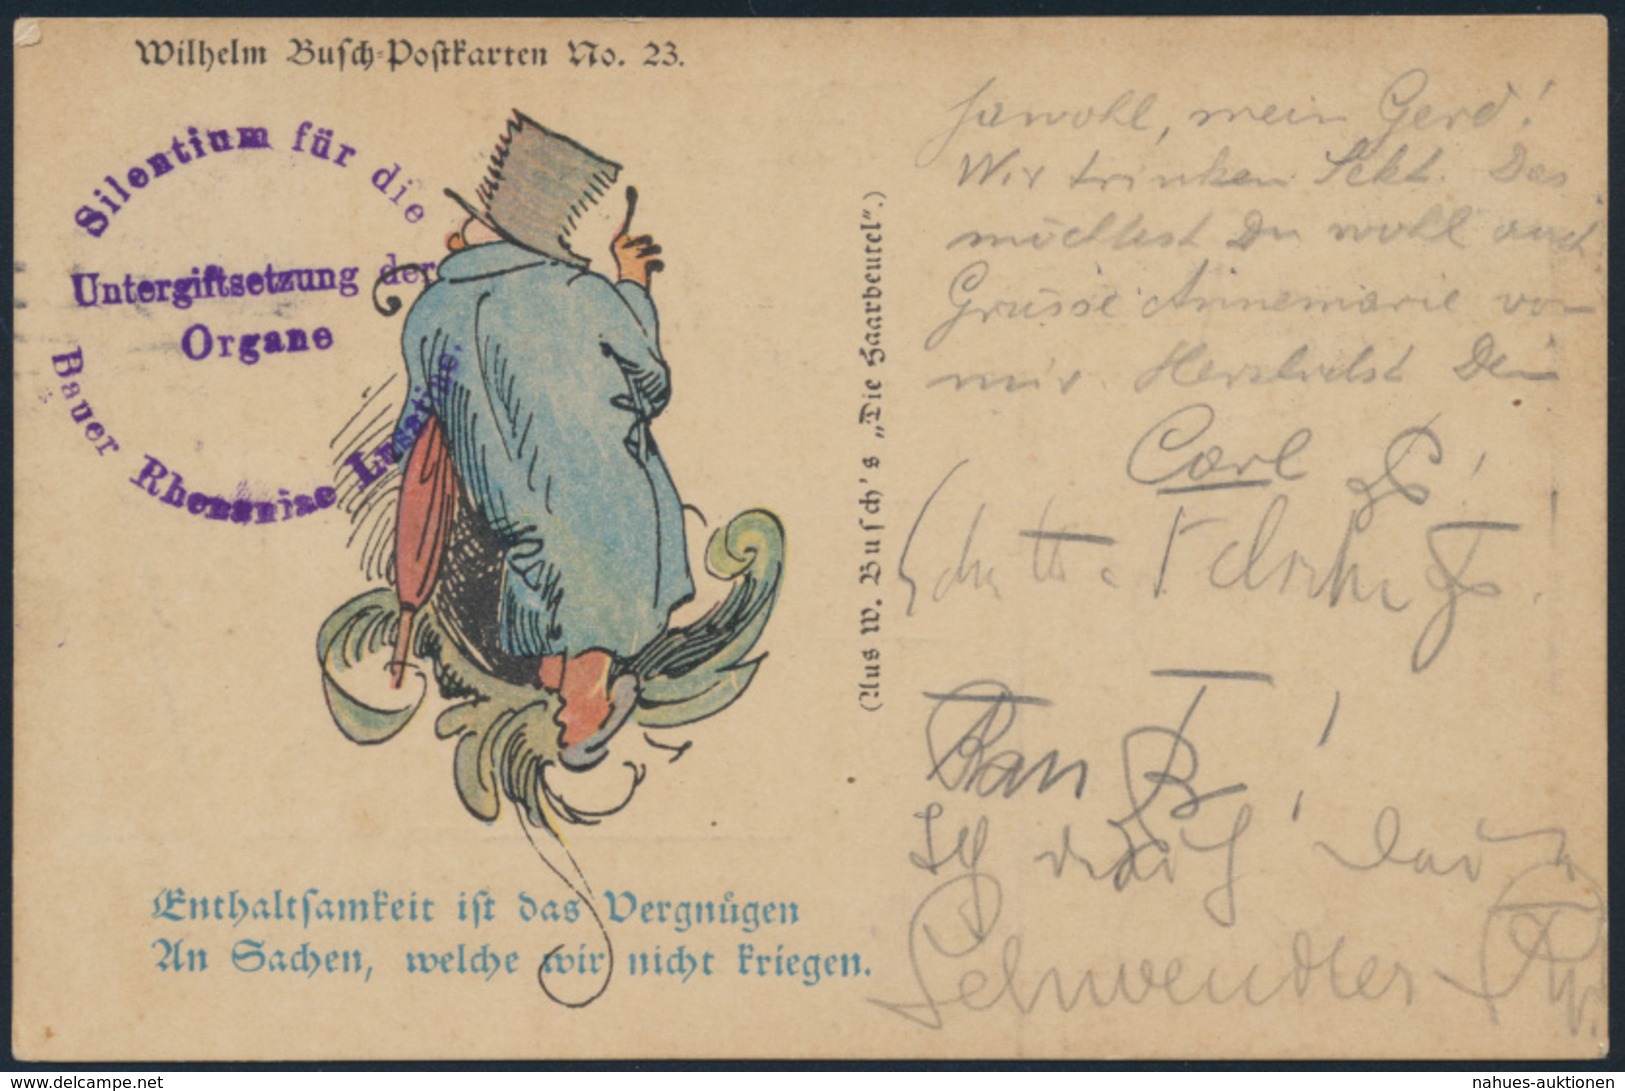 Wilhelm Busch-Postkarten No. 23.
Silentium für die
Untergiftsetzung der
Organe
Bauer Rhenaniae Lusatius.
(Aus W. Busch's „Die Haarbeutel".)
Enthaltsamkeit ist das Vergnügen
An Sachen, welche wir nicht kriegen.
Jawohl, mein Gerd!
Wir trinken Sekt. Das
möchtest Du wohl auch
Grüsse Annemarie von
mir. Herzlichst Dein
Carl
Schwendler
www.delcampe.net
nahues-auktionen